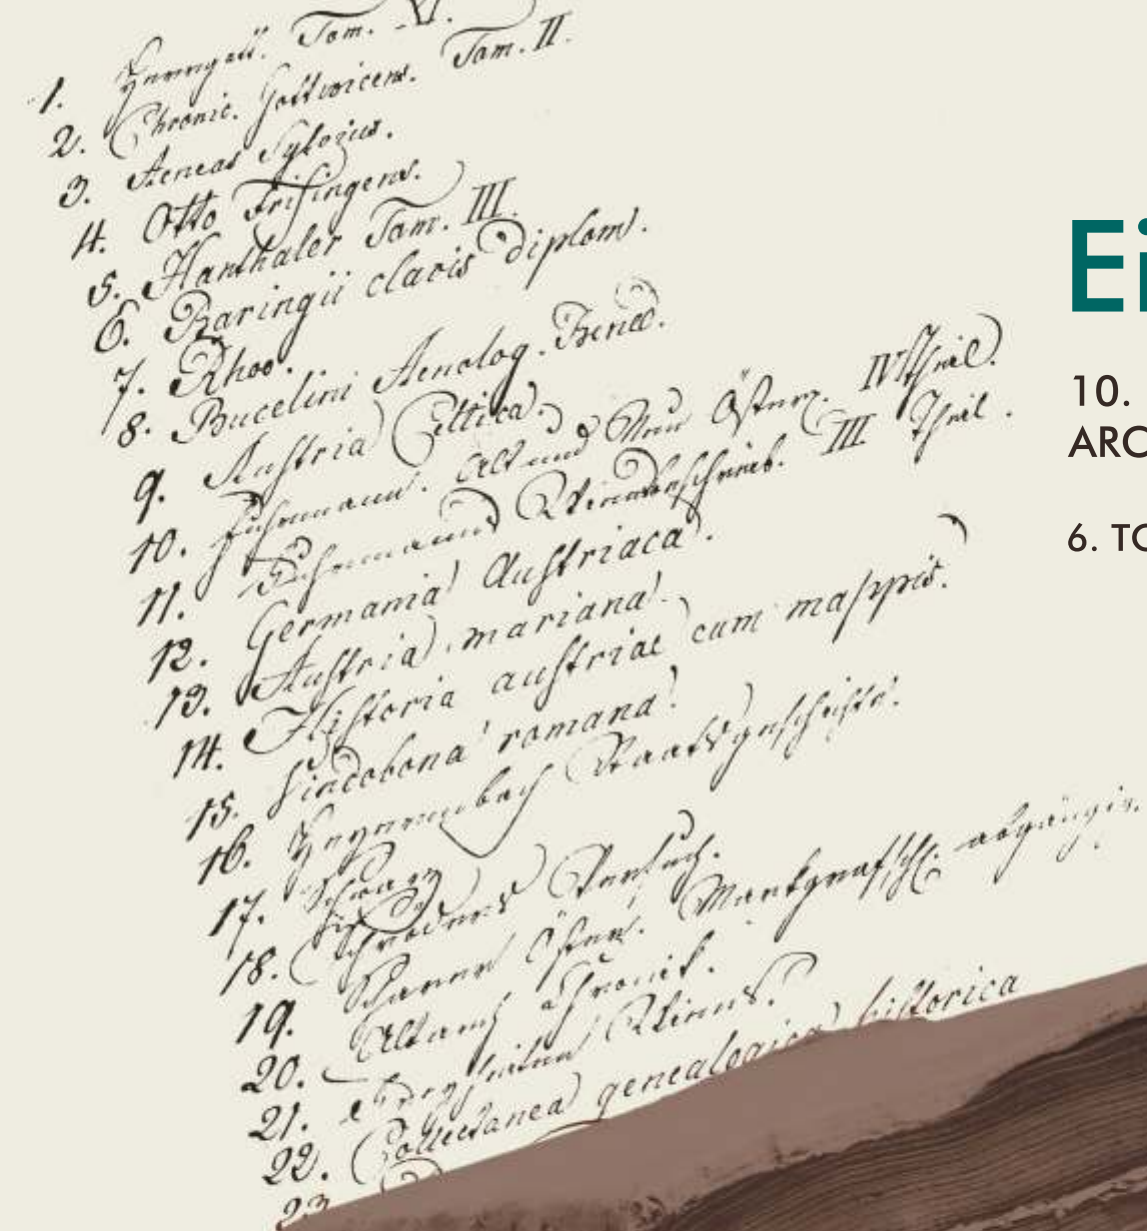 1. Herrgott. Tom. VI.
2. Chronic. Gottwicens. Tom. II.
3. Aeneas Sylvius.
4. Otto Frisingens.
5. Hanthaler Tom. III.
6. Baringii clavis diplom.
7. Rhoo.
8. Bucelini Aenolog. Bened.
9. Austria Celtica.
10. Fuhrmann. Alt und Neu Österr. IV Theil.
11. Fuhrmann Wienbeschreib. III Theil.
12. Germania Austriaca.
13. Austria mariana.
14. Historia austriae cum mappis.
15. Vindobona romana.
16. Heyrenbach
17.
18. Schroders Versuch.
19. Österr. Markgrafschl. abgängig.
20. Chronik.
21. Wiens.
22. Collectanea genealogica historica
23.
Ei
10.
ARC
6. TO